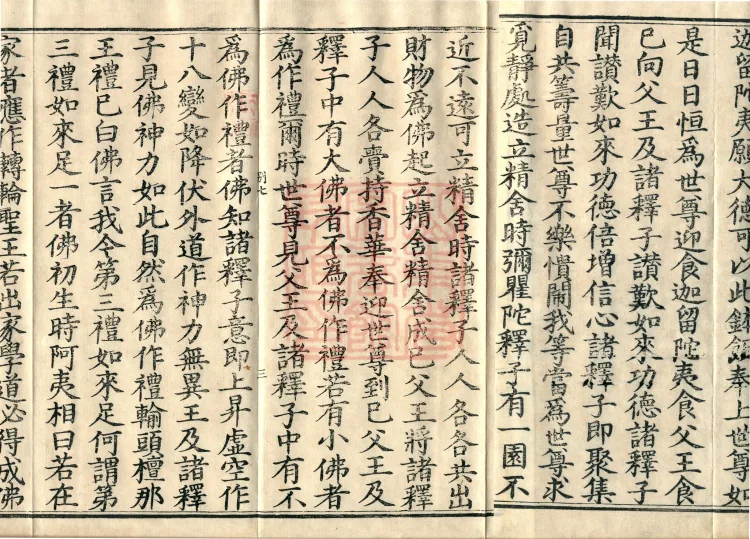 迦留陀夷願大德可以此鉢飯奉上世尊如
是日日恒爲世尊迎食迦留陀夷食父王食
已向父王及諸釋子讃歎如來功德諸釋子
聞讃歎如來功德倍增信心諸釋子即聚集
自共籌量世尊不樂憒閙我等當爲世尊求
覓靜處造立精舍時彌瞿陀釋子有一園不
近不遠可立精舍時諸釋子人人各各共出
財物爲佛起立精舍精舍成已父王將諸釋
子人人各賷持香華奉迎世尊到已父王及
釋子中有大佛者不爲佛作禮若有小佛者
爲作禮爾時世尊見父王及諸釋子中有不
列七 三
爲佛作禮者佛知諸釋子意即上昇虛空作
十八變如降伏外道作神力無異王及諸釋
子見佛神力如此自然爲佛作禮輸頭檀那
王禮已白佛言我今第三禮如來足何謂第
三禮如來足一者佛初生時阿夷相曰若在
家者應作轉輪聖王若出家學道必得成佛